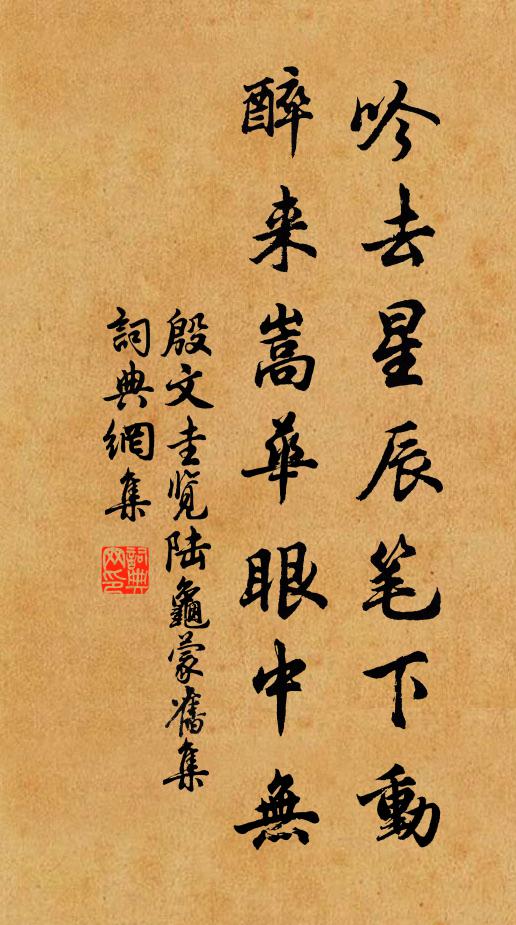 吟去星辰笔下動
醉来嵩華眼中無
殷文圭览陆龜蒙舊集
詞典網集
詞典網印